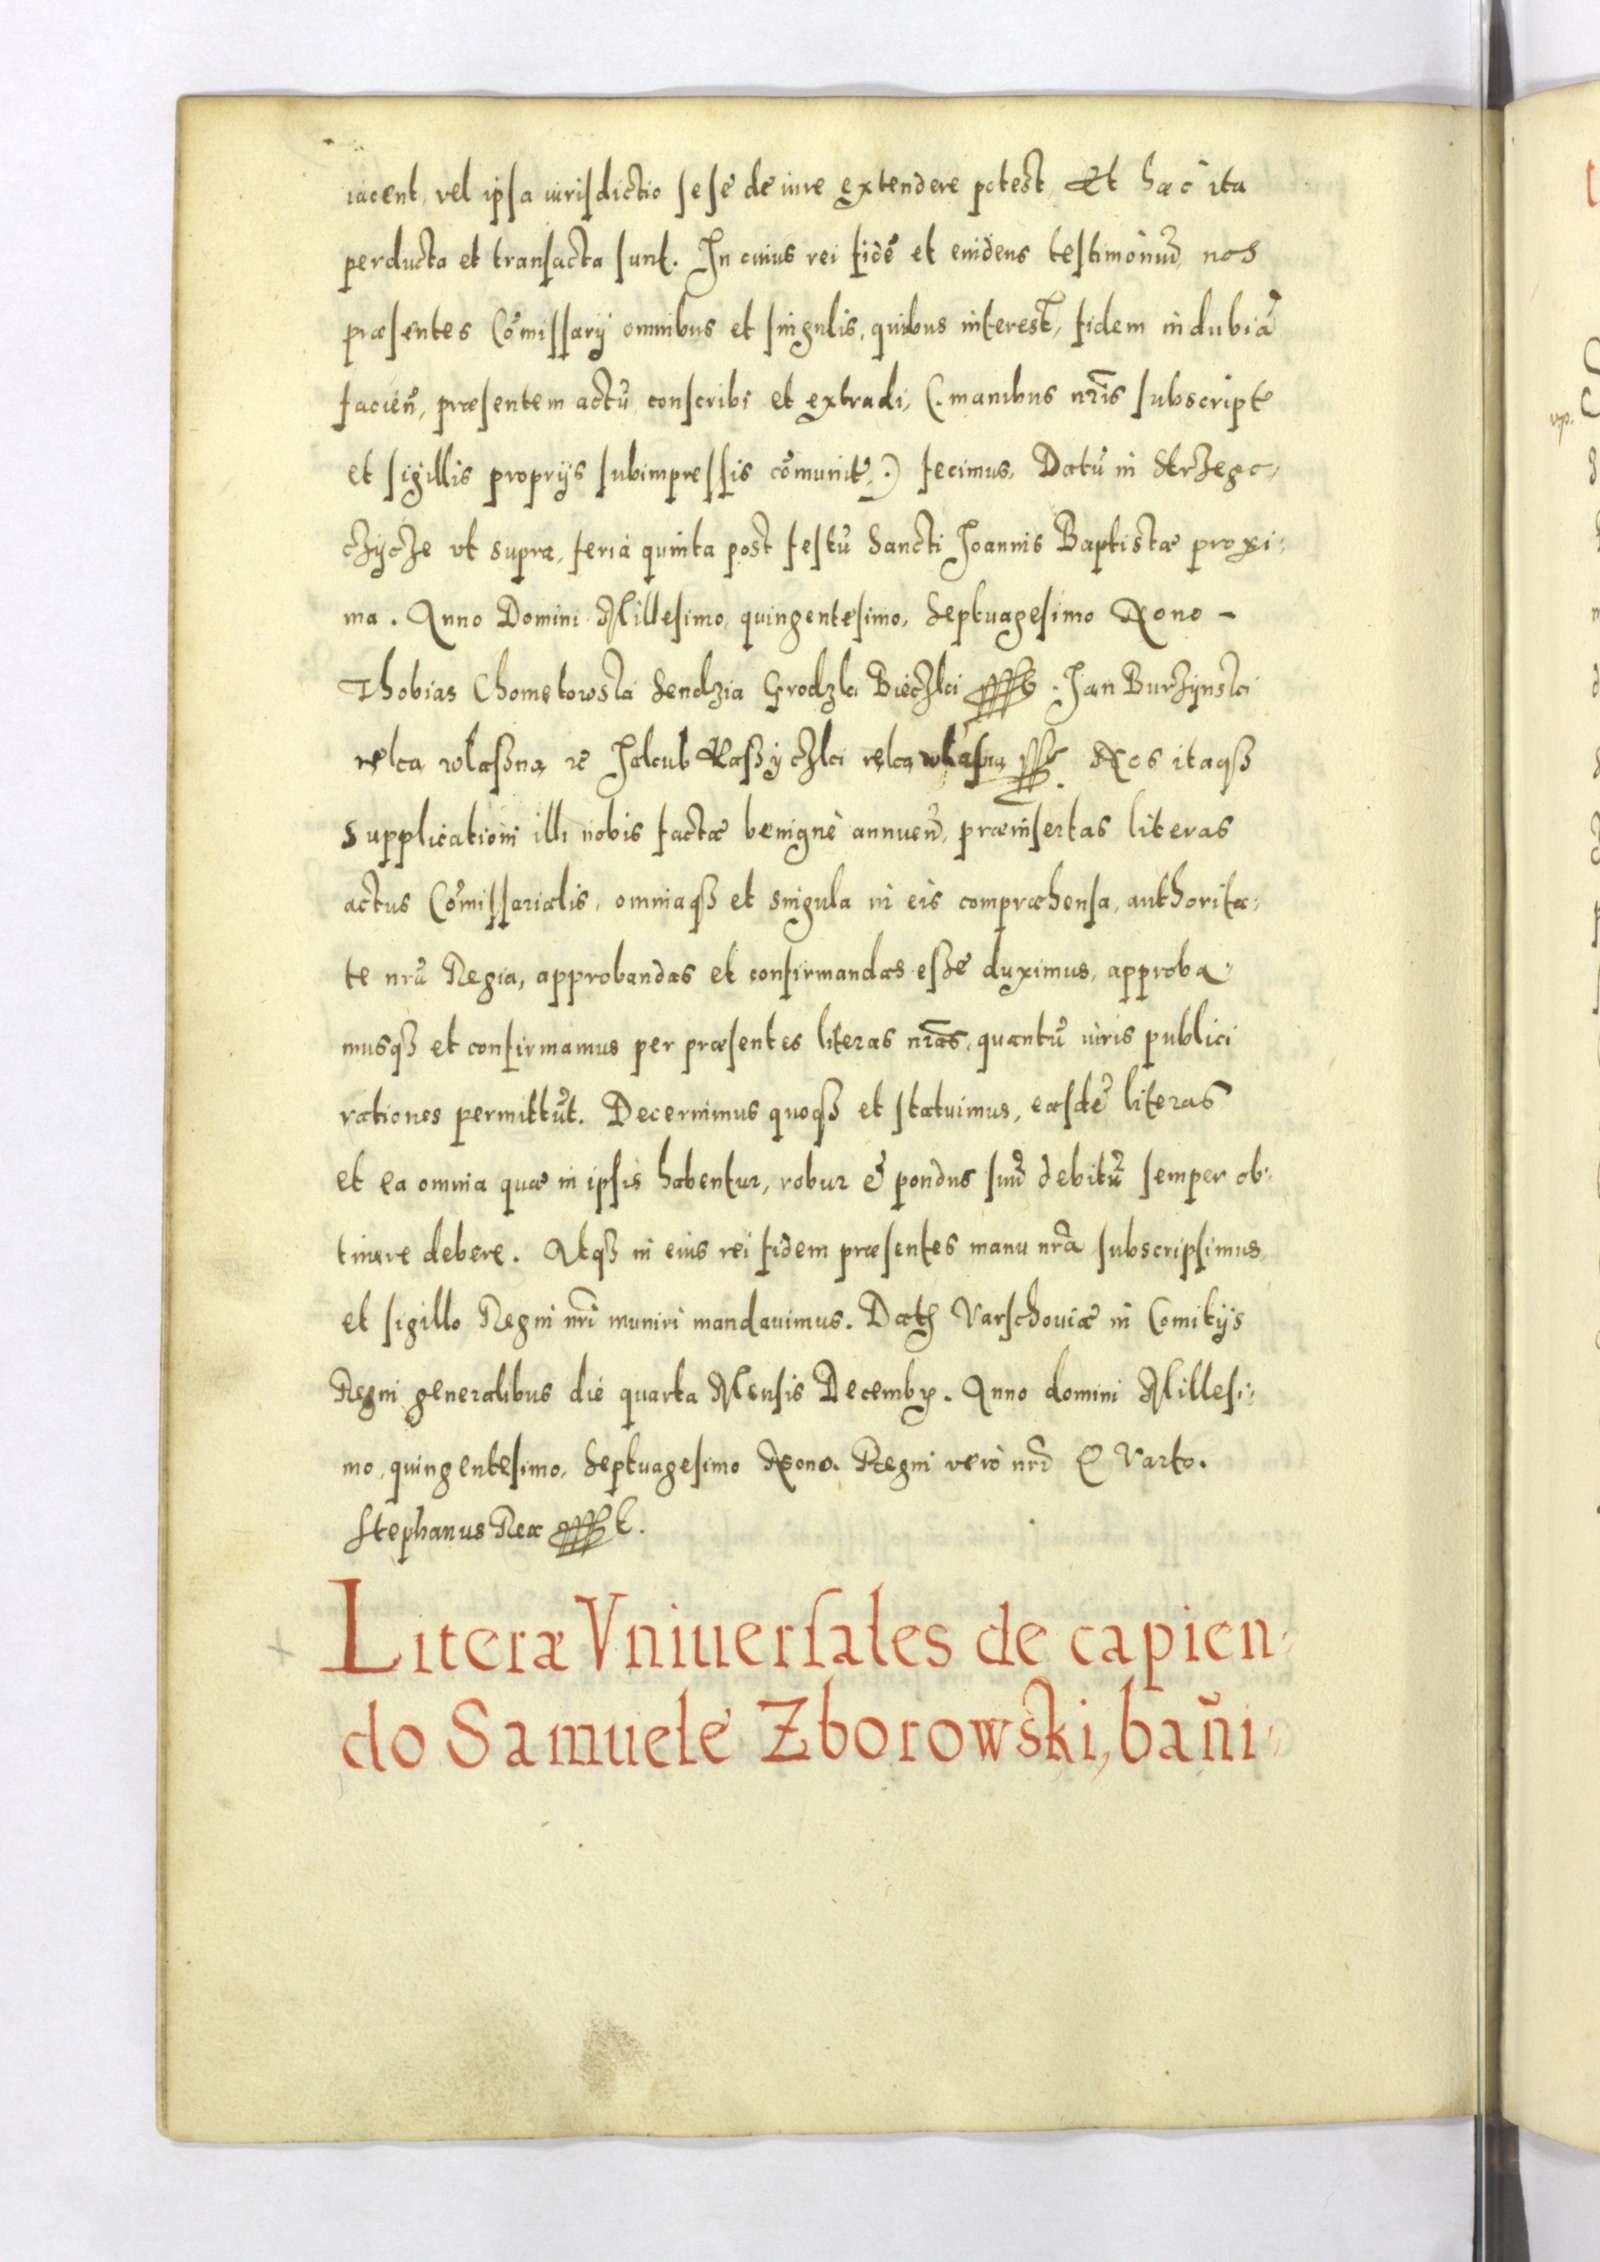 iacent, vel ipsa iurisdictio sese de iure extendere potest, Et haec ita
perducta et transacta sunt. In cuius rei fidē et euidens testimoniū, nos
præsentes Cōmissarij omnibus et singulis, quibus interest, fidem indubiā
facieñ, præsentem actū conscribi et extradi, (. manibus nr̄is subscript
et sigillis proprijs subimpressis cōmunit .) fecimus. Datū in Strzego-
czycze vt supra, feria quinta post festū Sancti Joannis Baptistæ proxi-
ma. Anno Domini Millesimo, quingentesimo, Septuagesimo Nono –
Thobias Chometowski Sendzia Grodzki Bieczki . Jan Burzynski
ręka właszna Jakub ręka Nos itaqȝ
supplicationi illi nobis factæ benignè annueñ, præinsertas literas
actus Cōmissarialis, omniaqȝ et singula in eis compræhensa, authorita-
te nrā Regia, approbandas et confirmandas esse duximus, approba-
musqȝ et confirmamus per præsentes literas nr̄as, quantū iuris publici
rationes permittūt. Decernimus quoqȝ et statuimus, easdē literas
et ea omnia quæ in ipsis habentur, robur & pondus suū debitū semper ob-
tinere debere. Atqȝ in eius rei fidem præsentes manu nrā subscripsimus,
et sigillo Regni nr̄i muniri mandauimus. Dat Varschouiæ in Comitijs
Regni generalibus die quarta Mensis Decembr. Anno domini Millesi-
mo, quingentesimo, Septuagesimo Nono. Regni verò nrī Qvarto.
Stephanus Rex
Literæ Vniuersales de capien-
do Samuele Zborowski, bañi-
vp.